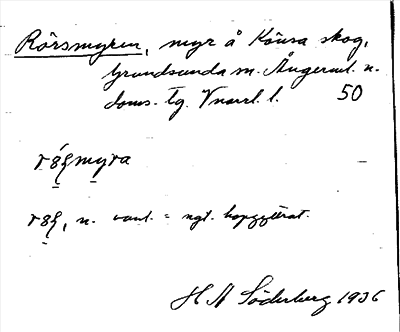 Rörsmyren, myr å Köusa skog,
Grundsunda sn. Ångerml. n.
doms. tg. Vnorrl. l. 50
myra
, n. vanl. = ngt. hopgyttrat.
H A Söderberg 1936